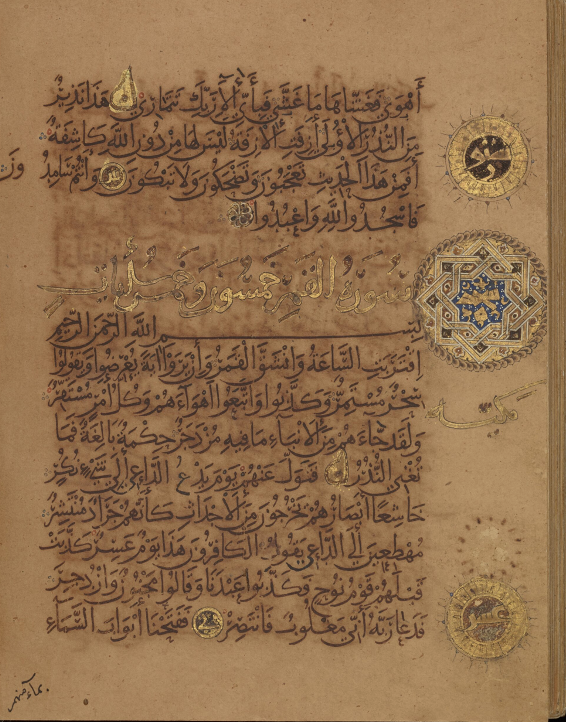 أَهْوَى فَغَشَّاهَا مَا غَشَّى فَبِأَيِّ آلَاءِ رَبِّكَ تَتَمَارَى هَذَا نَذِيرٌ
مِنَ النُّذُرِ الْأُولَى أَزِفَتِ الْآزِفَةُ لَيْسَ لَهَا مِنْ دُونِ اللَّهِ كَاشِفَةٌ
أَفَمِنْ هَذَا الْحَدِيثِ تَعْجَبُونَ وَتَضْحَكُونَ وَلَا تَبْكُونَ وَأَنْتُمْ سَامِدُ
فَاسْجُدُوا لِلَّهِ وَاعْبُدُوا
سورة القمر خمسون وخمس آيات
بِسْمِ اللَّهِ الرَّحْمَنِ الرَّحِيمِ
اقْتَرَبَتِ السَّاعَةُ وَانْشَقَّ الْقَمَرُ وَإِنْ يَرَوْا آيَةً يُعْرِضُوا وَيَقُولُوا
سِحْرٌ مُسْتَمِرٌّ وَكَذَّبُوا وَاتَّبَعُوا أَهْوَاءَهُمْ وَكُلُّ أَمْرٍ مُسْتَقِرٌّ
مكية
وَلَقَدْ جَاءَهُمْ مِنَ الْأَنْبَاءِ مَا فِيهِ مُزْدَجَرٌ حِكْمَةٌ بَالِغَةٌ فَمَا
تُغْنِ النُّذُرُ فَتَوَلَّ عَنْهُمْ يَوْمَ يَدْعُ الدَّاعِي إِلَى شَيْءٍ نُكُرٍ
خَاشِعًا أَبْصَارُهُمْ يَخْرُجُونَ مِنَ الْأَجْدَاثِ كَأَنَّهُمْ جَرَادٌ مُنْتَشِرٌ
مُهْطِعِينَ إِلَى الدَّاعِي يَقُولُ الْكَافِرُونَ هَذَا يَوْمٌ عَسِرٌ كَذَّبَتْ
قَبْلَهُمْ قَوْمُ نُوحٍ فَكَذَّبُوا عَبْدَنَا وَقَالُوا مَجْنُونٌ وَازْدُجِرَ
فَدَعَا رَبَّهُ أَنِّي مَغْلُوبٌ فَانْتَصِرْ فَفَتَحْنَا أَبْوَابَ السَّمَاءِ
بماء منهمر